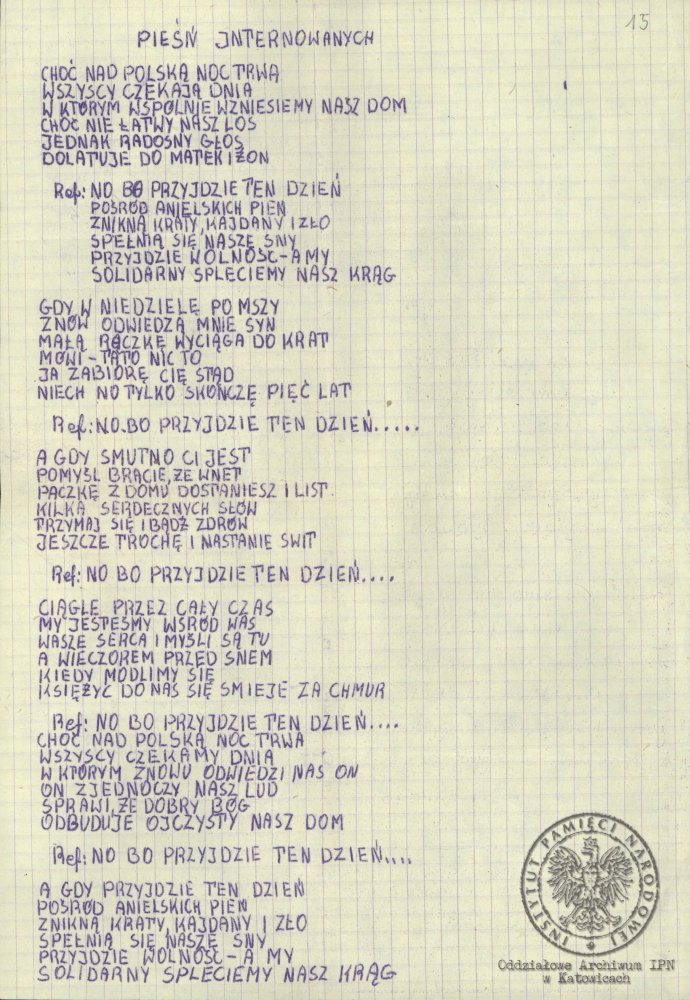 15
PIEŚŃ INTERNOWANYCH
CHOĆ NAD POLSKĄ NOC TRWA
WSZYSCY CZEKAJĄ DNIA
W KTÓRYM WSPÓLNIE WZNIESIEMY NASZ DOM
CHOĆ NIE ŁATWY NASZ LOS
JEDNAK RADOSNY GŁOS
DOLATUJE DO MATEK I ŻON
Ref: NO BO PRZYJDZIE TEN DZIEŃ
POŚRÓD ANIELSKICH PIEŃ
ZNIKNĄ KRATY, KAJDANY I ZŁO
SPEŁNIĄ SIĘ NASZE SNY
PRZYJDZIE WOLNOŚĆ - A MY
SOLIDARNY SPLECIEMY NASZ KRĄG
GDY W NIEDZIELĘ PO MSZY
ZNÓW ODWIEDZA MNIE SYN
MAŁĄ RĄCZKĘ WYCIĄGA DO KRAT
MÓWI - TATO NIC TO
JA ZABIORĘ CIĘ STĄD
NIECH NO TYLKO SKOŃCZĘ PIĘĆ LAT
Ref: NO BO PRZYJDZIE TEN DZIEŃ.....
A GDY SMUTNO CI JEST
POMYŚL BRACIE, ŻE WNET
PACZKĘ Z DOMU DOSTANIESZ I LIST.
KILKA SERDECZNYCH SŁÓW
TRZYMAJ SIĘ I BĄDŹ ZDRÓW
JESZCZE TROCHĘ I NASTANIE ŚWIT
Ref: NO BO PRZYJDZIE TEN DZIEŃ....
CIĄGLE PRZEZ CAŁY CZAS
MY JESTEŚMY WŚRÓD WAS
WASZE SERCA I MYŚLI SĄ TU
A WIECZOREM PRZED SNEM
KIEDY MODLIMY SIĘ
KSIĘŻYC DO NAS SIĘ ŚMIEJE ZA CHMUR
Ref: NO BO PRZYJDZIE TEN DZIEŃ....
CHOĆ NAD POLSKĄ NOC TRWA
WSZYSCY CZEKAMY DNIA
W KTÓRYM ZNOWU ODWIEDZI NAS ON
ON ZJEDNOCZY NASZ LUD
SPRAWI, ŻE DOBRY BÓG
ODBUDUJE OJCZYSTY NASZ DOM
Ref: NO BO PRZYJDZIE TEN DZIEŃ....
A GDY PRZYJDZIE TEN DZIEŃ
POŚRÓD ANIELSKICH PIEŃ
ZNIKNĄ KRATY, KAJDANY I ZŁO
SPEŁNIĄ SIĘ NASZE SNY
PRZYJDZIE WOLNOŚĆ - A MY
SOLIDARNY SPLECIEMY NASZ KRĄG
INSTYTUT PAMIĘCI NARODOWEJ
Oddziałowe Archiwum IPN
w Katowicach